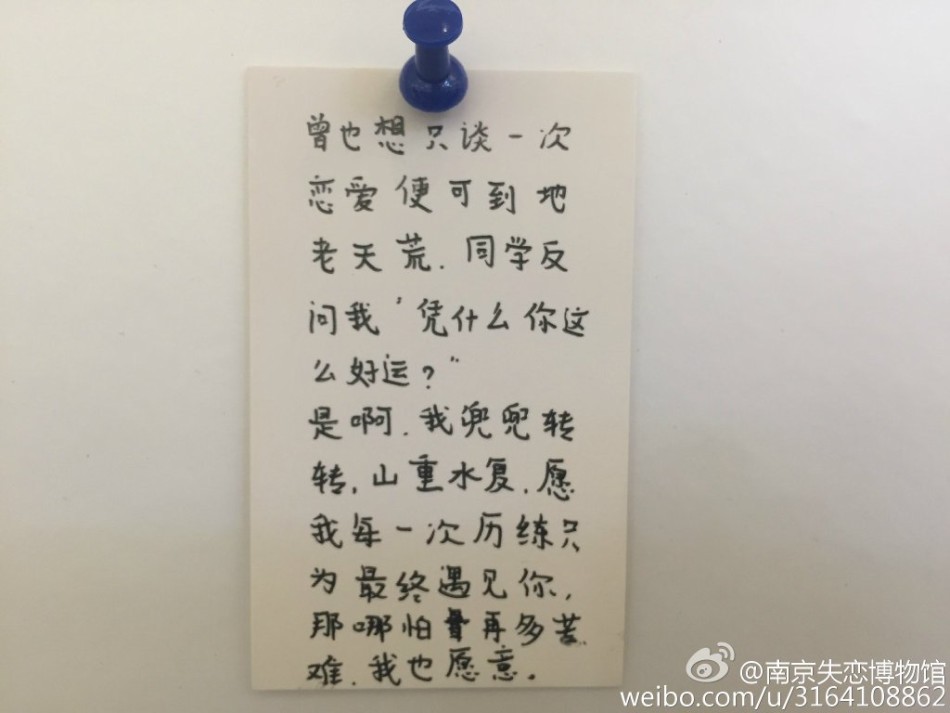 曾也想只谈一次
恋爱便可到地
老天荒.同学反
问我“凭什么你这
么好运?”
是啊.我兜兜转
转,山重水复.愿
我每一次历练只
为最终遇见你,
那哪怕再多苦
难.我也愿意.
@南京失恋博物馆
weibo.com/u/3164108862